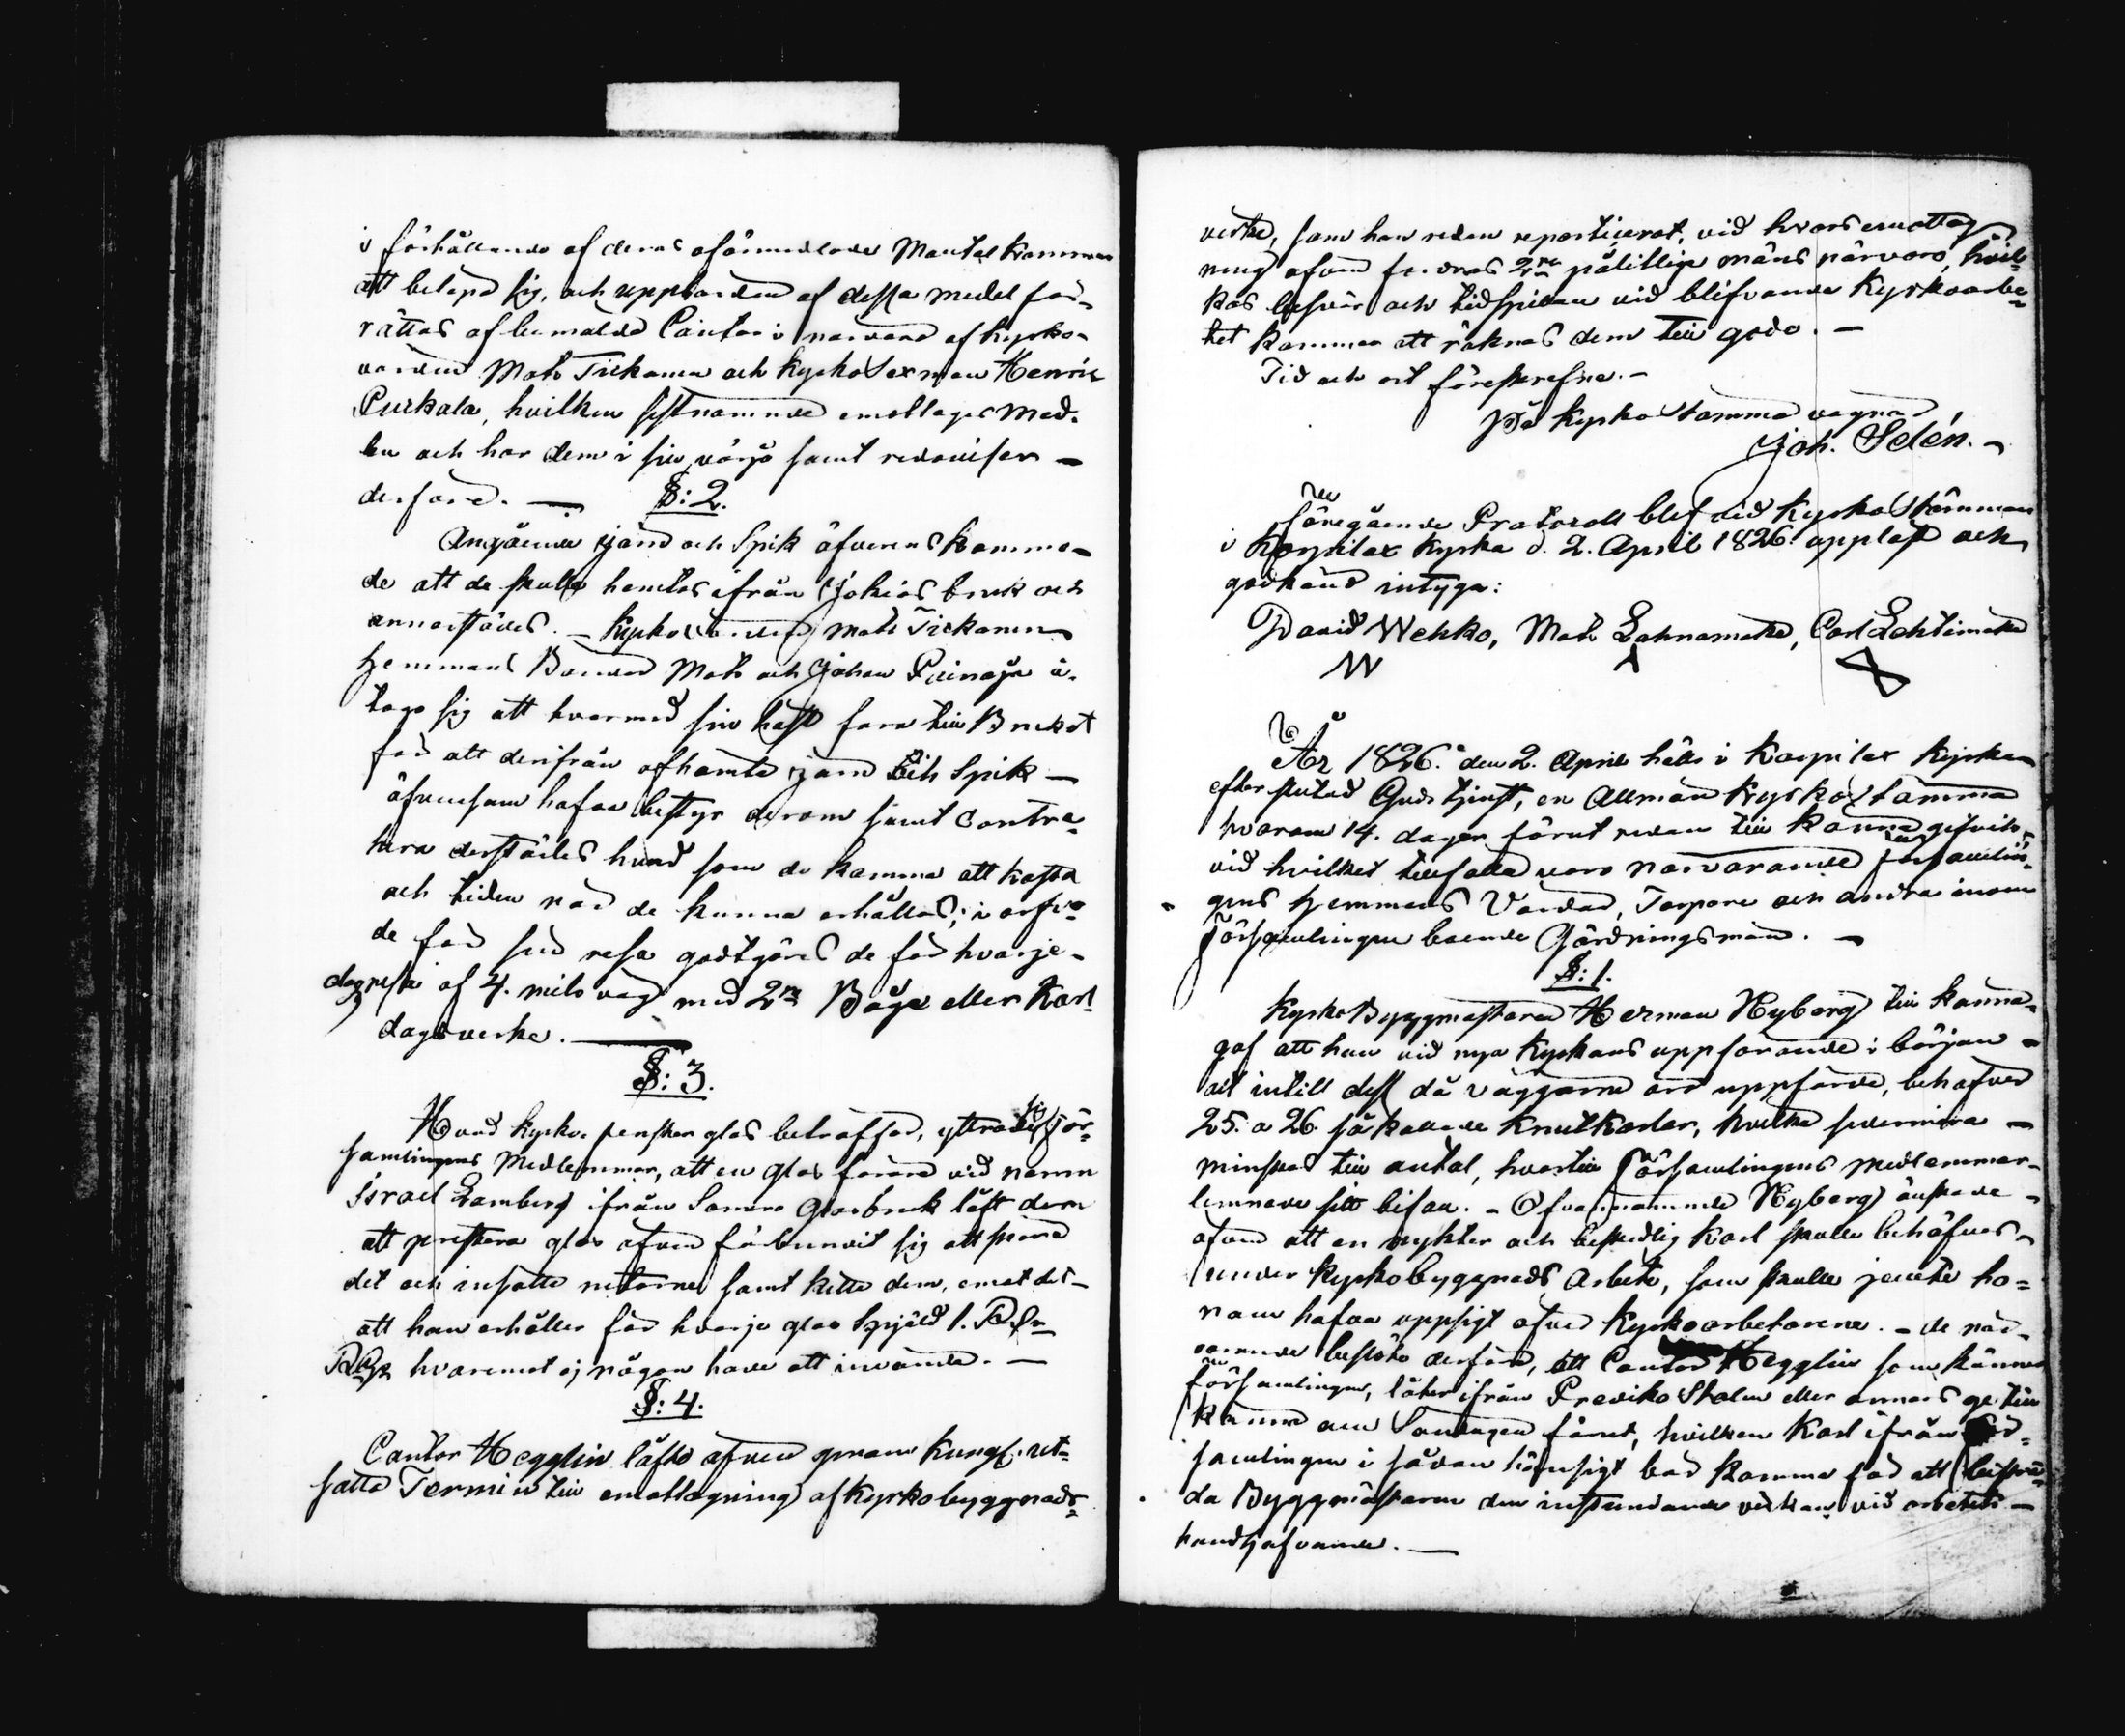 i förhållande af deras oförmedlade Mantal kommer
att belöpa sig, och uppbörden af dessa medel för-
rättas af bemälde Cantor i närvaro af kyrko-
värden Mats Tickanen och kyrko Sexman Henric
Purkala, hvilken sistnämnde emottager med-
len och har dem i sin värjo samt redovisar
derföre. — §: 2.
Angående järn och Spik öfverenskomma-
de att de skulle hemtas ifrån Jokios bruk och
annorstädes. — Kyrkovärden Mats Tickanen
hemmans Bonden Mats och Johan Priinaja å-
togo sig att hvar med sin häst fara till Bruket
för att derifrån afhämta järn och Spik —
äfvensom hafva bestyr derom samt contra-
hera derstädes hvad som de komma att kosta
och tiden när de kunna erhållas; i arfvo-
de för sin resa godtgöres de för hvarje
dagresa af 4. mils väg med 2ne Böge eller Karl
dagsverke. —
§: 3.
Hvad kyrko fenster glas beträffar, yttrade sig För-
samlingens Medlemmar, att en glas förare vid namn
Israel Lamberg ifrån Somero Glasbruk låft dem
att prestera glas äfven förbundit sig att skära
det och insätta rutorne samt kitta dem, emot det
att han erhåller för hvarje glas Spjäld 1. Rdr
RGs hvaremot ej någon hade att invända. —
§: 4.
Cantor Hegglin låfte äfven genom Kungl. ut-
sätta Termin till emottagning af kyrkobyggnads-
virke, som han redan reparticerat, vid hvars emottag
ning äfven fordras 2ne pålitlige mäns närvaro, hvil-
kas besvär och tidspillan vid blifvande Kyrkoarbe-
tet kommer att räknas dem till godo. —
Tid och ort föreskrefne. —
På Kyrko Stämmo vägnar
Joh. Selén. —
Föregående Protocoll blef vid Kyrko Stämman
i Koepilax Kyrka d. 2. April 1826. uppläst och
godkänd intyga:
David Wehko, Mats Lahnamäke, Carl Lehtimäke
W
År 1826. den 2. April hölls i Karpilax Kyrka
efter slutad Gudstjenst, en Allmän Kyrko Stämma
hvarom 14. dagar förut redan till känna gifvits,
vid hvilket tillfälle voro närvarande församlin-
gens hemmans Värdar, Torpare och andra inom
Församlingen boende Gärdningsmän. —
§: 1.
Kyrko Byggmästaren Herman Nyberg till känna-
gaf att han vid nya Kyrkans uppförande i början —
alt intill dess då väggarne äro uppförde, behöfver
25. a 26. så kallade knutkarlar, hvilka sedermera —
minskas till antal, hvartill Församlingens medlemmar
lemnade sitt bifall. — Ofvannämnde Nyberg önskade —
äfven att en nykter och beskedlig Karl skulle behöfvas
under Kyrkobyggnads Arbete, som skulle jemte ho-
nom hafva uppsigt öfver Kyrkoarbetarene. — De när-
varande beslöto derföre, att Cantor Hegglin som känner
församlingen, låter ifrån Prediko Stolen eller annars ge till
känna en Söndagen förut, hvilken Karl ifrån För-
samlingen i sådan hänsigt bör komma för att biträ-
da Byggmästaren den instundande veckan vid arbetets —
handhafvande. —